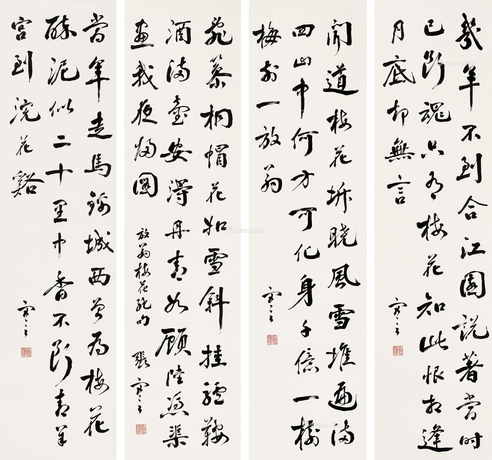 幾年不到合江園說著當時
已斷魂只有梅花知此恨相逢
月底却無言
寒之
聞道梅花坼曉風雪堆遍滿
四山中何方可化身千億一樹
梅前一放翁
寒之
亂篸桐帽花如雪斜挂驢鞍
酒滿壺安得丹青如顧陸憑渠
畫我夜歸圖
放翁梅花絕句 張寒之
當年走馬錦城西曾為梅花
醉泥似二十里中香不斷青羊
宮到浣花谿
寒之